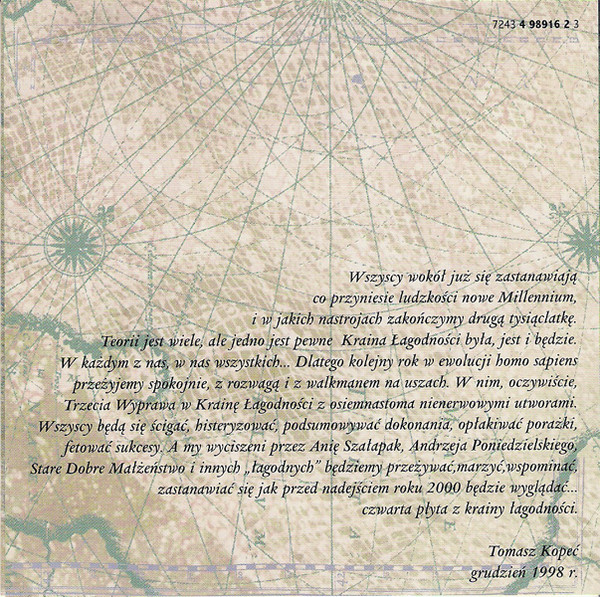 7243 4 98916 2 3
Wszyscy wokół już się zastanawiają
co przyniesie ludzkości nowe Millennium,
i w jakich nastrojach zakończymy drugą tysiąclatkę.
Teorii jest wiele, ale jedno jest pewne Kraina Łagodności była, jest i będzie.
W każdym z nas, w nas wszystkich... Dlatego kolejny rok w ewolucji homo sapiens
przeżyjemy spokojnie, z rozwagą i z walkmanem na uszach. W nim, oczywiście,
Trzecia Wyprawa w Krainę Łagodności z osiemnastoma nienerwowymi utworami.
Wszyscy będą się ścigać, histeryzować, podsumowywać dokonania, opłakiwać porażki,
fetować sukcesy. A my wyciszeni przez Anię Szałapak, Andrzeja Poniedzielskiego,
Stare Dobre Małżeństwo i innych „łagodnych” będziemy przeżywać,marzyć,wspominać,
zastanawiać się jak przed nadejściem roku 2000 będzie wyglądać...
czwarta płyta z krainy łagodności.
Tomasz Kopeć
grudzień 1998 r.